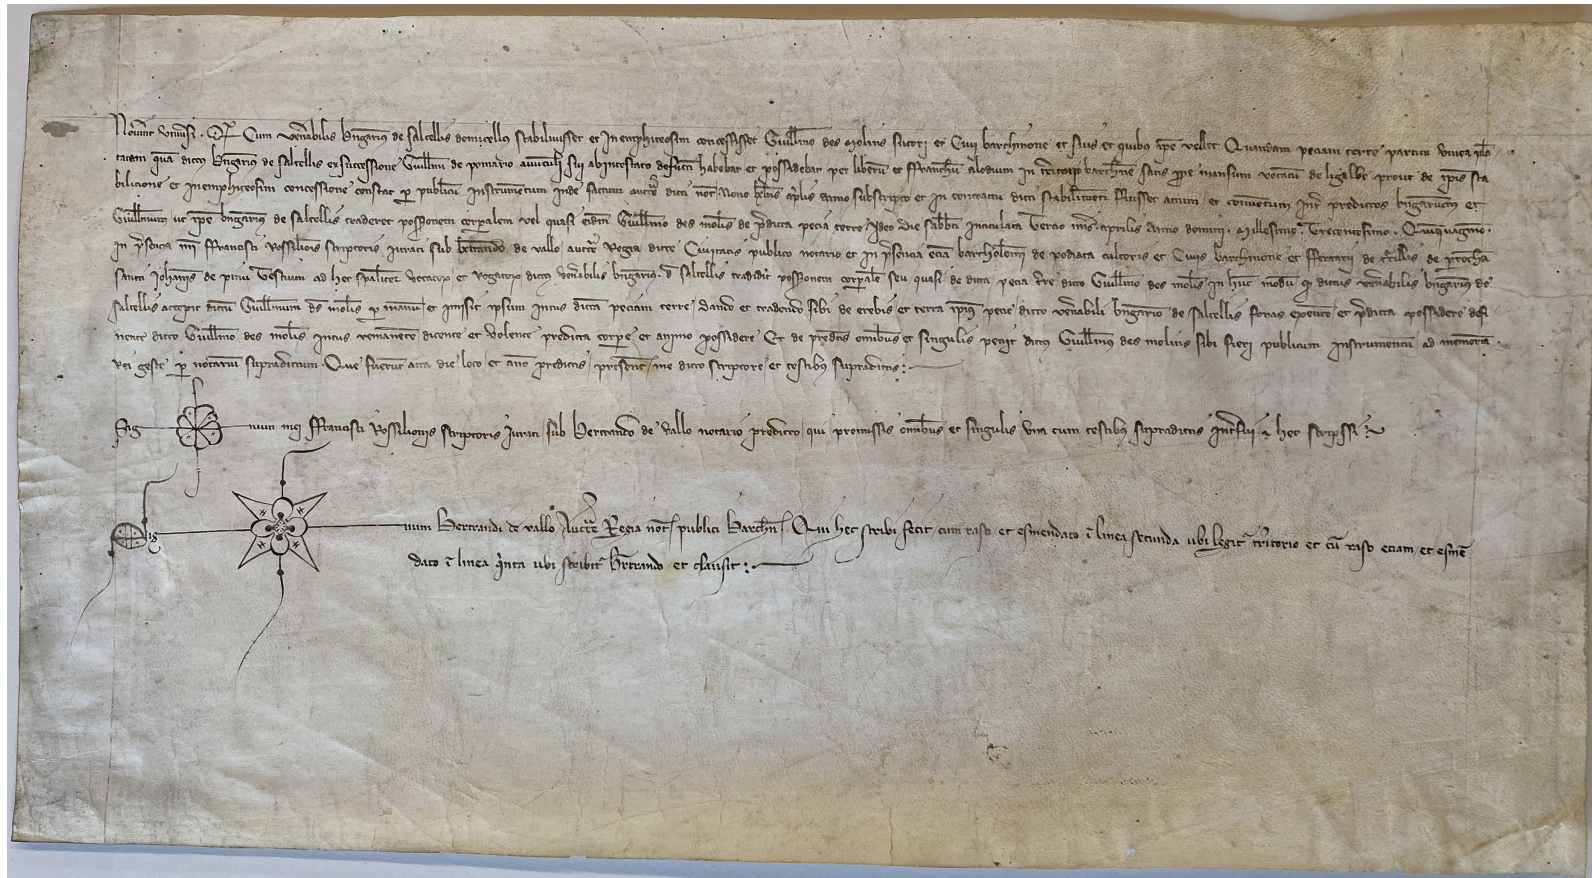 Nov̄int univ̄si . Qd̄ Cum ven̄abilis bn̄garius de salcellis domicellus stabilivisset et In emphiteosim concessisset Guill̄mo des Molins sutori et Civi barchinone et suis et quibus ip̄e vellet Quandam peciam terre partim vinea pla
tatam quā dictus bn̄garius de salcellis ex successione Guill̄mi de pomario avunculi sui ab intestato defuncti habebat et possidebat per liberū et ffranchū alodium in t̄ritorio barchn̄e satis prope mansum vocatū de ligalbe prout de ip̄is sta
bilicione et in emphiteosim concessione constat per publicū Instrumentum inde factum auctē dicti not̄ Nono kl̄as aprilis anno subscripto et in contractu dicti stabilimenti ffuisset actum et conventum int̄ predictos bn̄garium et
Guill̄mum ut ip̄e bn̄garius de salcellis traderet possessionem corporalem vel quasi eidem Guill̄mo des molīs de p̄dicta pecia terre . Ideo die sabb̄ti intitulata Tercio nōs aprilis Anno domini Millesimo Trecentesimo Quinquagēno
In p̄sencia mei ffrancisci Rossilionis scriptoris Iurati sub bertrando de vallo auctē Regia dicte Civitatis publico notario et in p̄sencia eciā bartholomei de podiata cultoris et Civis barchinone et fferrarii de de parochia
sancti Johanis de pinu Testium ad hec specialiter vocator et rogator dictus ven̄abilis bn̄garius d̄ salcellis tradidit possessionem corporalē seu quasi de dicta pecia t̄re dicto Guill̄mo des molīs in hūc modū qd̄ dictus ven̄abilis bn̄garius de
salcellis accepit dictū Guill̄mum des molīs per manū et imisit ipsum intus dictā peciam terre Dando et tradendo sibi de erebis et terra ip̄ius pecie dicto ven̄abili bn̄gario de salcellis foras exeunte et p̄dicta possidere desi
nente dicto Guill̄mo des molīs intus remanente dicente et volente predicta corpore et animo possidere Et de predictis omībus et singulis petiit dictus Guill̄mus des molinis sibi fieri publicum instrumentū ad memoriā
rei geste per notariū supradictum . Que fuerunt acta die loco et anō predictis present̄ me dicto scriptore et testibus supradictis :
Sig num mei ffrancisci Rossilionis scriptoris Iurati sub Bertrando de vallo notario predicto qui premissis omībus et singulis una cum testibus supradictis int̄fui & hec scripssi :
Sig num Bertrandi de vallo Auctē Regia not̄ publici Barchn̄ Qui hec scribi fecit cum raso et esmendato ī linea secunda ubi legit̄ t̄ritorio et cū raso eciam et esmē
dato ī linea q̄inta ubi scribit̄ b̄rtrando et clausit :